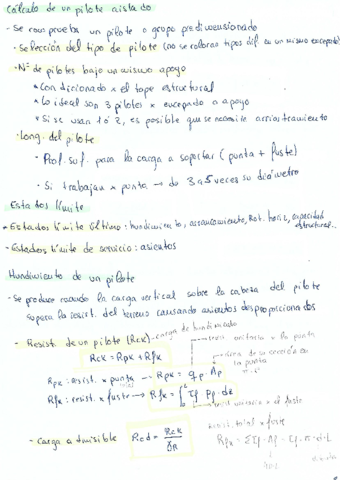 Cálculo de un pilote aislado
- Se comprueba un pilote o grupo predimensionado
- Selección del tipo de pilote (no se colocan tipos dif. en un mismo encepado)
- Nº de pilotes bajo un mismo apoyo
* Condicionado x el tope estructural
* Lo ideal son 3 pilotes x encepado o apoyo
* Si se usan 1 o 2, es posible que se necesite arriostramiento
- Long. del pilote
* Prof. suf. para la carga a soportar (punta + fuste)
* Si trabajan x punta → de 3 a 5 veces su diámetro
Estados límite
• Estados límite último: hundimiento, arrancamiento, Rot. horiz, capacidad estructural..
- Estados límite de servicio: asientos
Hundimiento de un pilote
- Se produce cuando la carga vertical sobre la cabeza del pilote
supera la resist. del terreno causando asientos desproporcionados
- Resist. de un pilote (Rck) → carga de hundimiento
Rck = Rpk + Rfk
resist unitaria x la punta
área de su sección en la punta
Rpk: resist. x punta → Rpk = qp · Ap
Rfk: resist. x fuste → Rfk = ∫ τf pf · dz
resist unitaria x el fuste
- Carga admisible Rcd = Rck / γR
resist. total x fuste